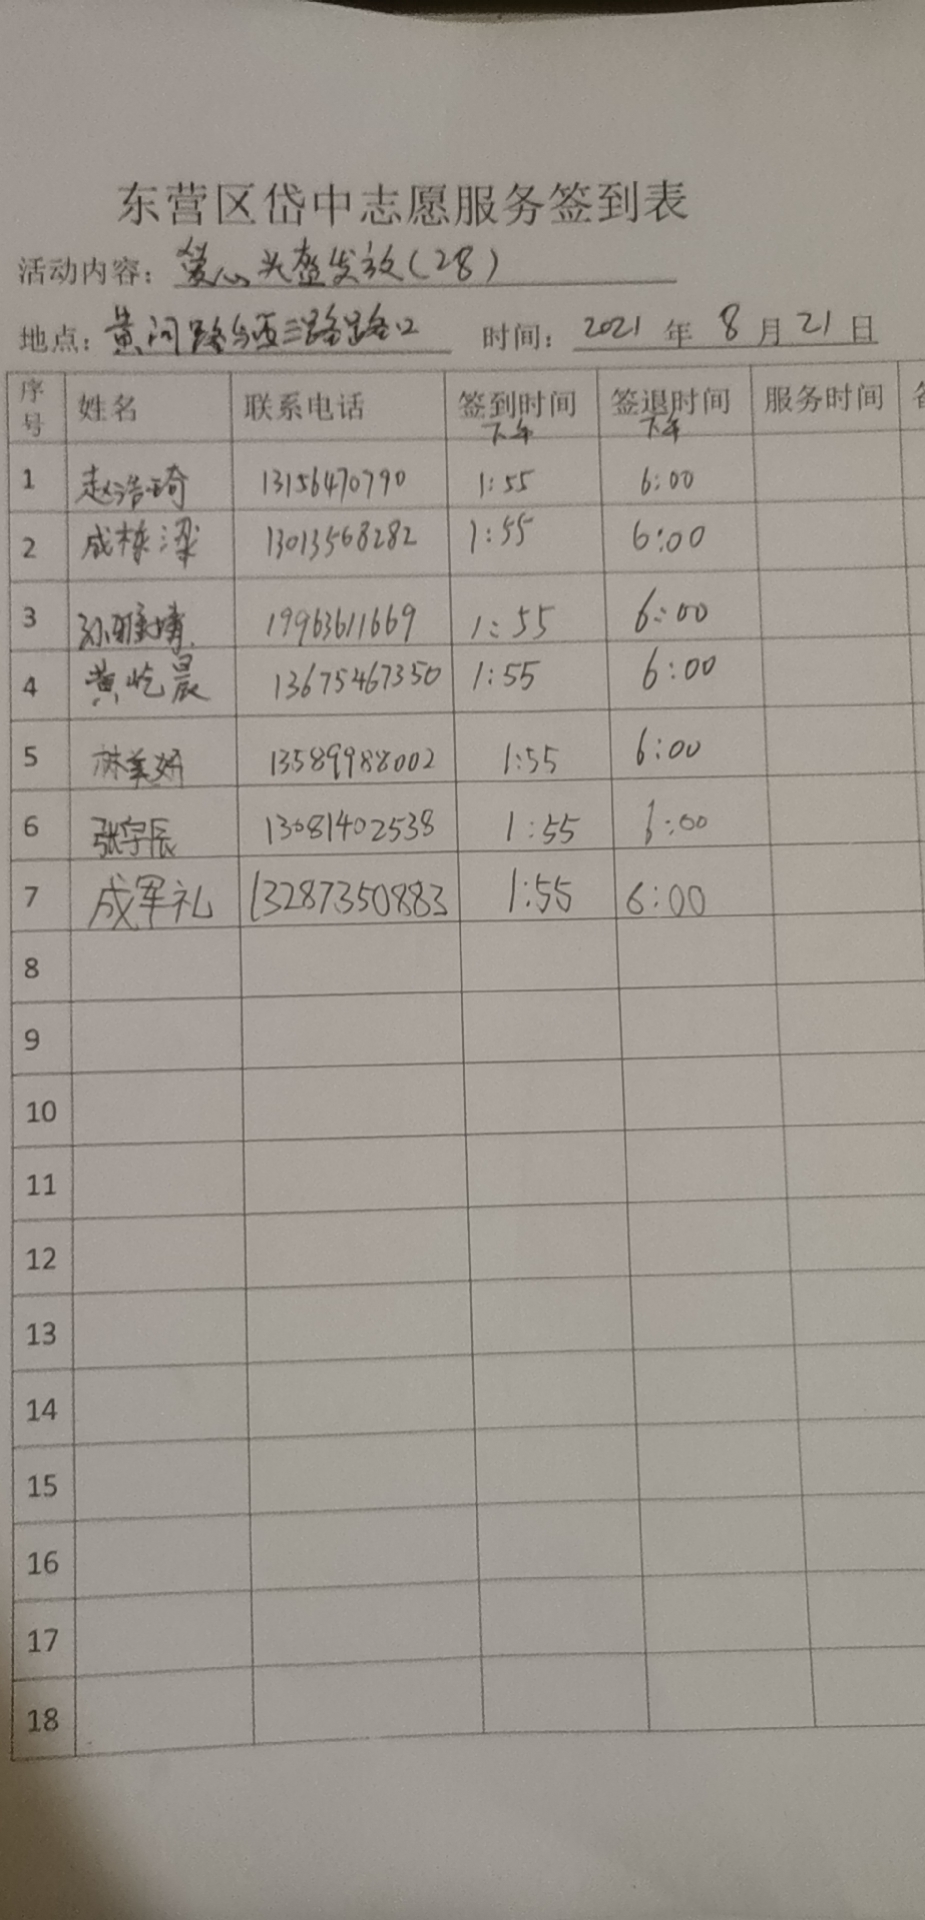 东营区岱中志愿服务签到表
活动内容：爱心头盔发放(28)
地点：黄河路与西三路路口 时间：2021年8月21日
序号 姓名 联系电话 签到时间 下午 签退时间 下午 服务时间
1 赵浩琦 13156470790 1:55 6:00
2 成栋梁 13013568282 1:55 6:00
3 孙雅婧 19963611669 1:55 6:00
4 黄屹晨 13675467350 1:55 6:00
5 林美妍 13589988002 1:55 6:00
6 张宇辰 13081402538 1:55 6:00
7 成军礼 13287350883 1:55 6:00
8
9
10
11
12
13
14
15
16
17
18